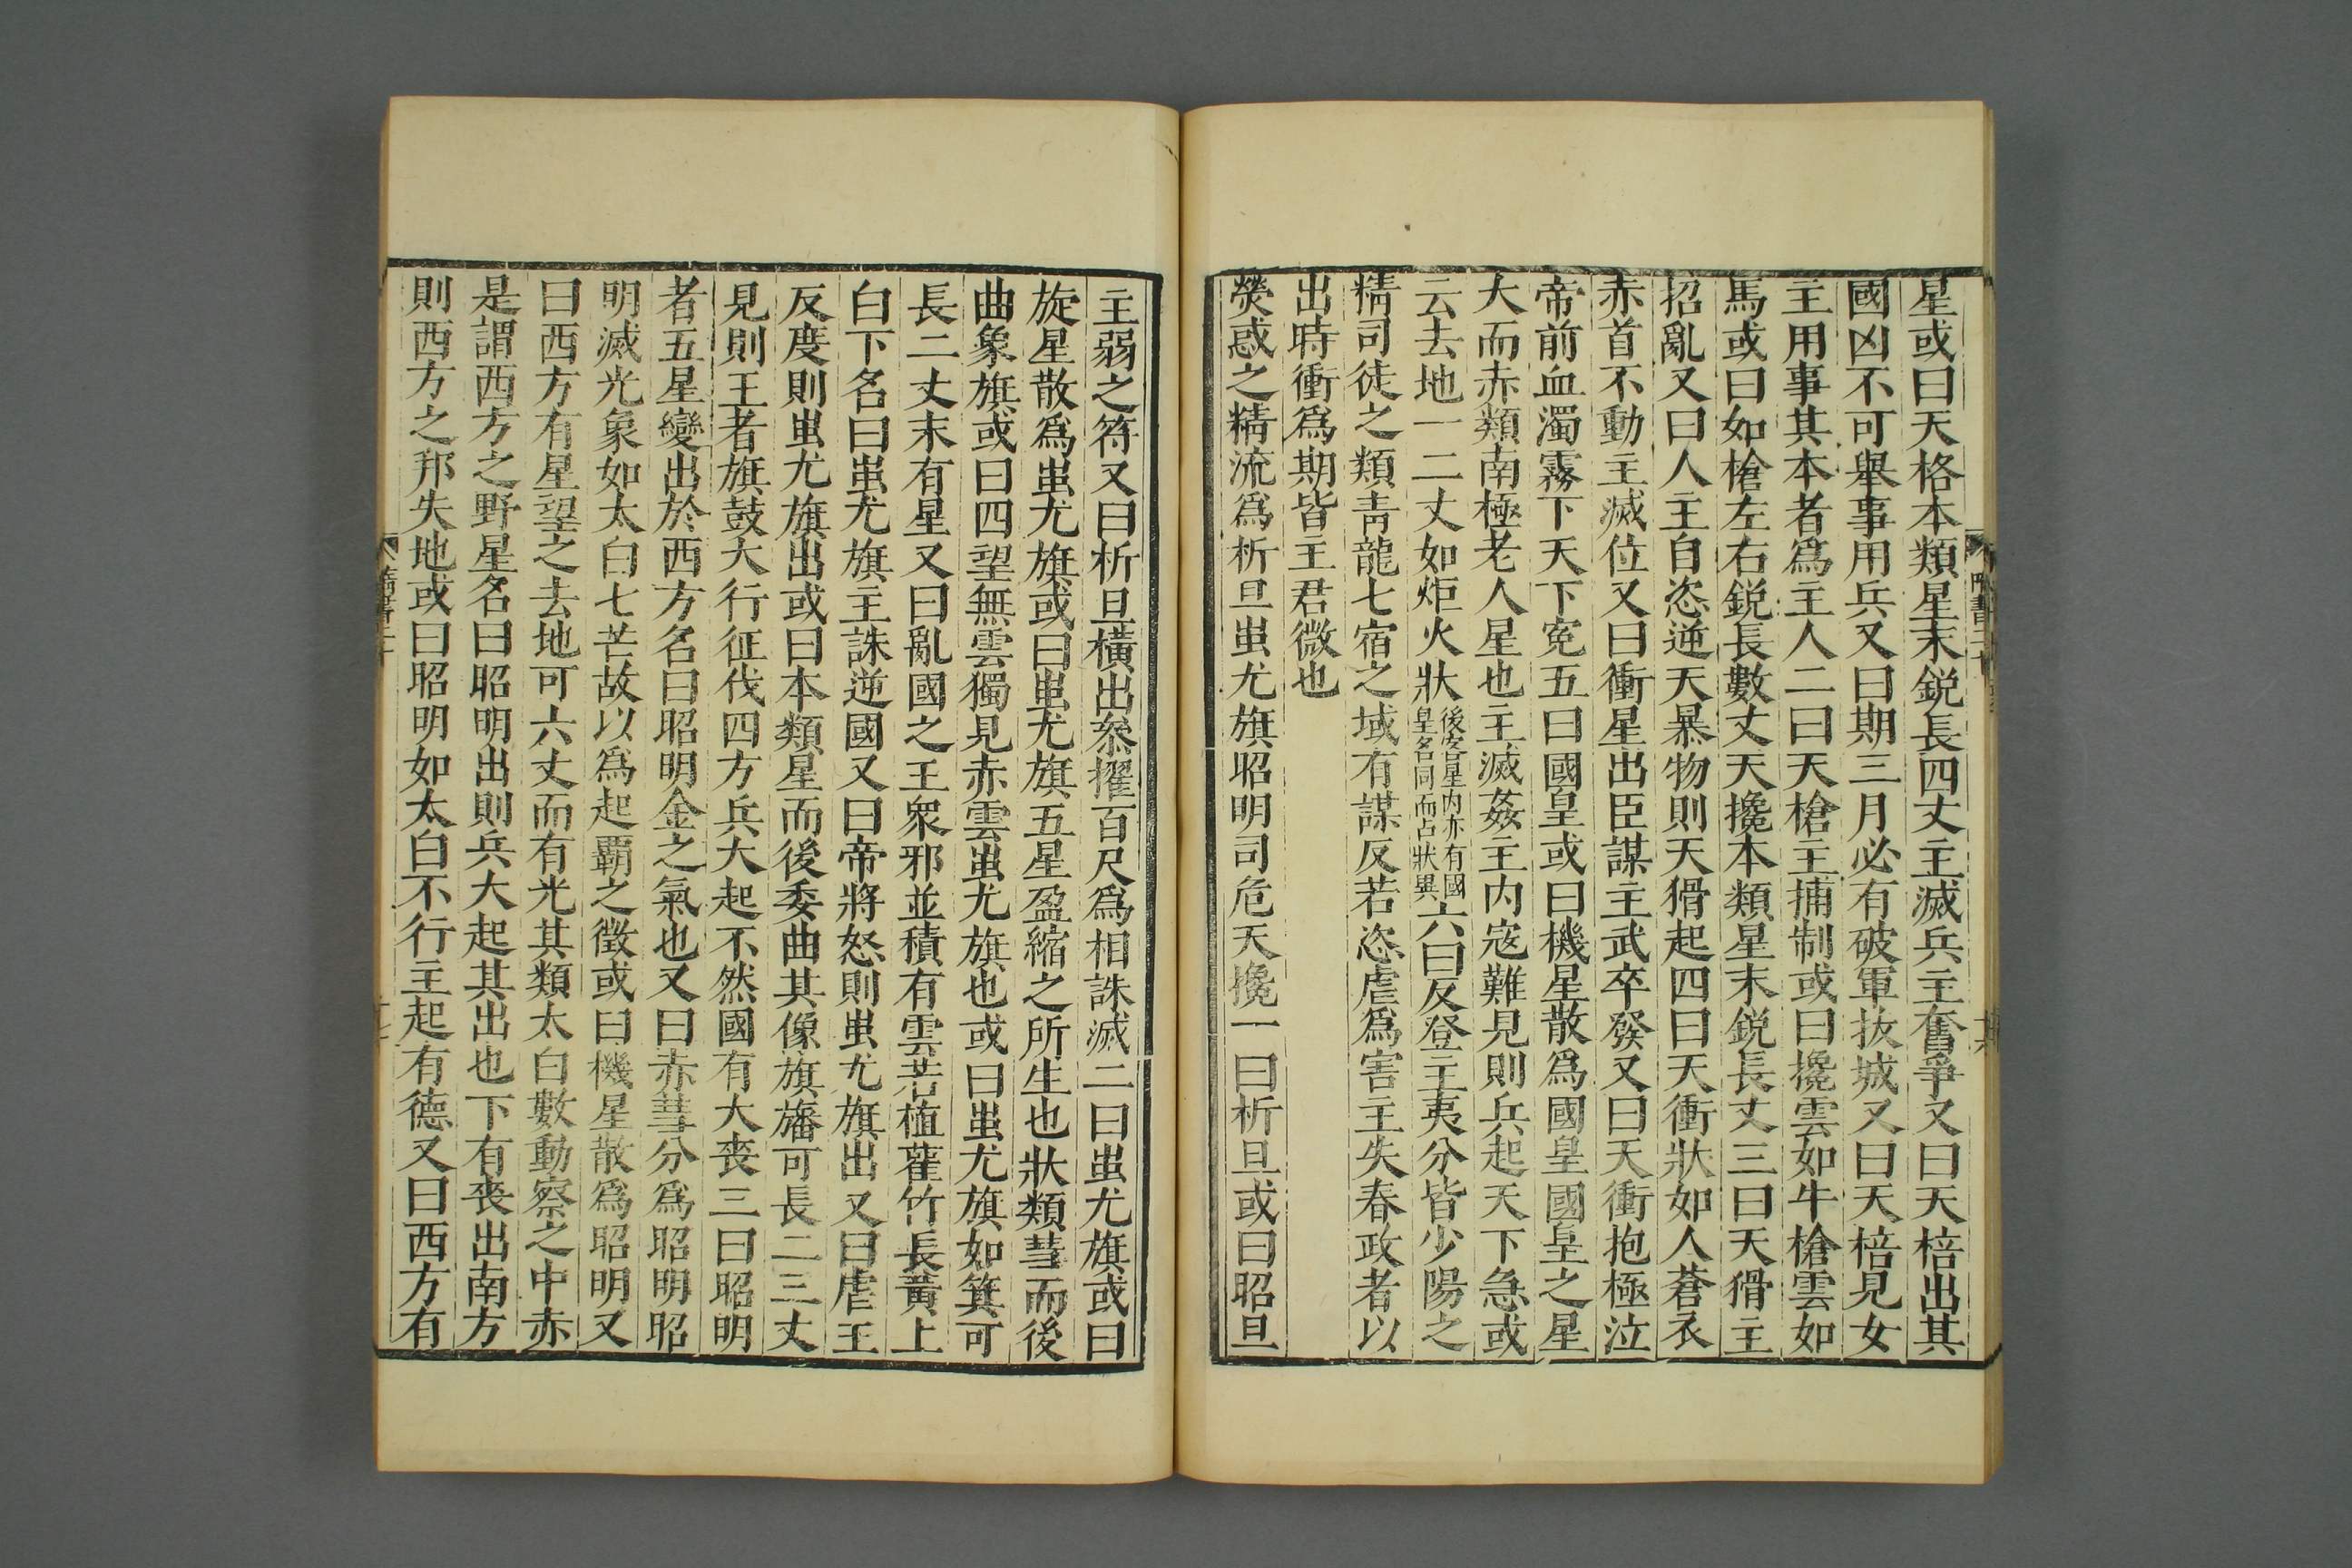 星或曰天格本類星末鋭長四丈主滅兵主奮爭又曰天棓出其
國凶不可舉事用兵又曰期三月必有破軍拔城又曰天棓見女
主用事其本者爲主人二曰天槍主捕制或曰攙雲如牛槍雲如
馬或曰如槍左右鋭長數丈天攙本類星末鋭長丈三曰天猾主
招亂又曰人主自恣逆天暴物則天猾起四曰天衝狀如人蒼衣
赤首不動主滅位又曰衝星出臣謀主武卒發又曰天衝抱極泣
帝前血濁霧下天下寃五曰國皇或曰機星散爲國皇國皇之星
大而赤類南極老人星也主滅姦主内寇難見則兵起天下急或
云去地一二丈如炬火狀後客星内亦有國皇名同而占狀異六曰反登主夷分皆少陽之
精司徒之類青龍七宿之域有謀反若恣虐爲害主失春政者以
出時衝爲期皆主君微也
熒惑之精流爲析旦蚩尤旗昭明司危天攙一曰析旦或曰昭旦
主弱之符又曰析旦橫出參擢百尺爲相誅滅二曰蚩尤旗或曰
旋星散爲蚩尤旗或曰蚩尤旗五星盈縮之所生也狀類彗而後
曲象旗或曰四望無雲獨見赤雲蚩尤旗也或曰蚩尤旗如箕可
長二丈末有星又曰亂國之王衆邪並積有雲若植雚竹長黃上
白下名曰蚩尤旗主誅逆國又曰帝將怒則蚩尤旗出又曰虐王
反度則蚩尤旗出或曰本類星而後委曲其像旗旛可長二三丈
見則王者旗鼓大行征伐四方兵大起不然國有大喪三曰昭明
者五星變出於西方名曰昭明金之氣也又曰赤彗分爲昭明昭
明滅光象如太白七芒故以爲起霸之徵或曰機星散爲昭明又
曰西方有星望之去地可六丈而有光其類太白數動察之中赤
是謂西方之野星名曰昭明出則兵大起其出也下有喪出南方
則西方之邦失地或曰昭明如太白不行主起有德又曰西方有